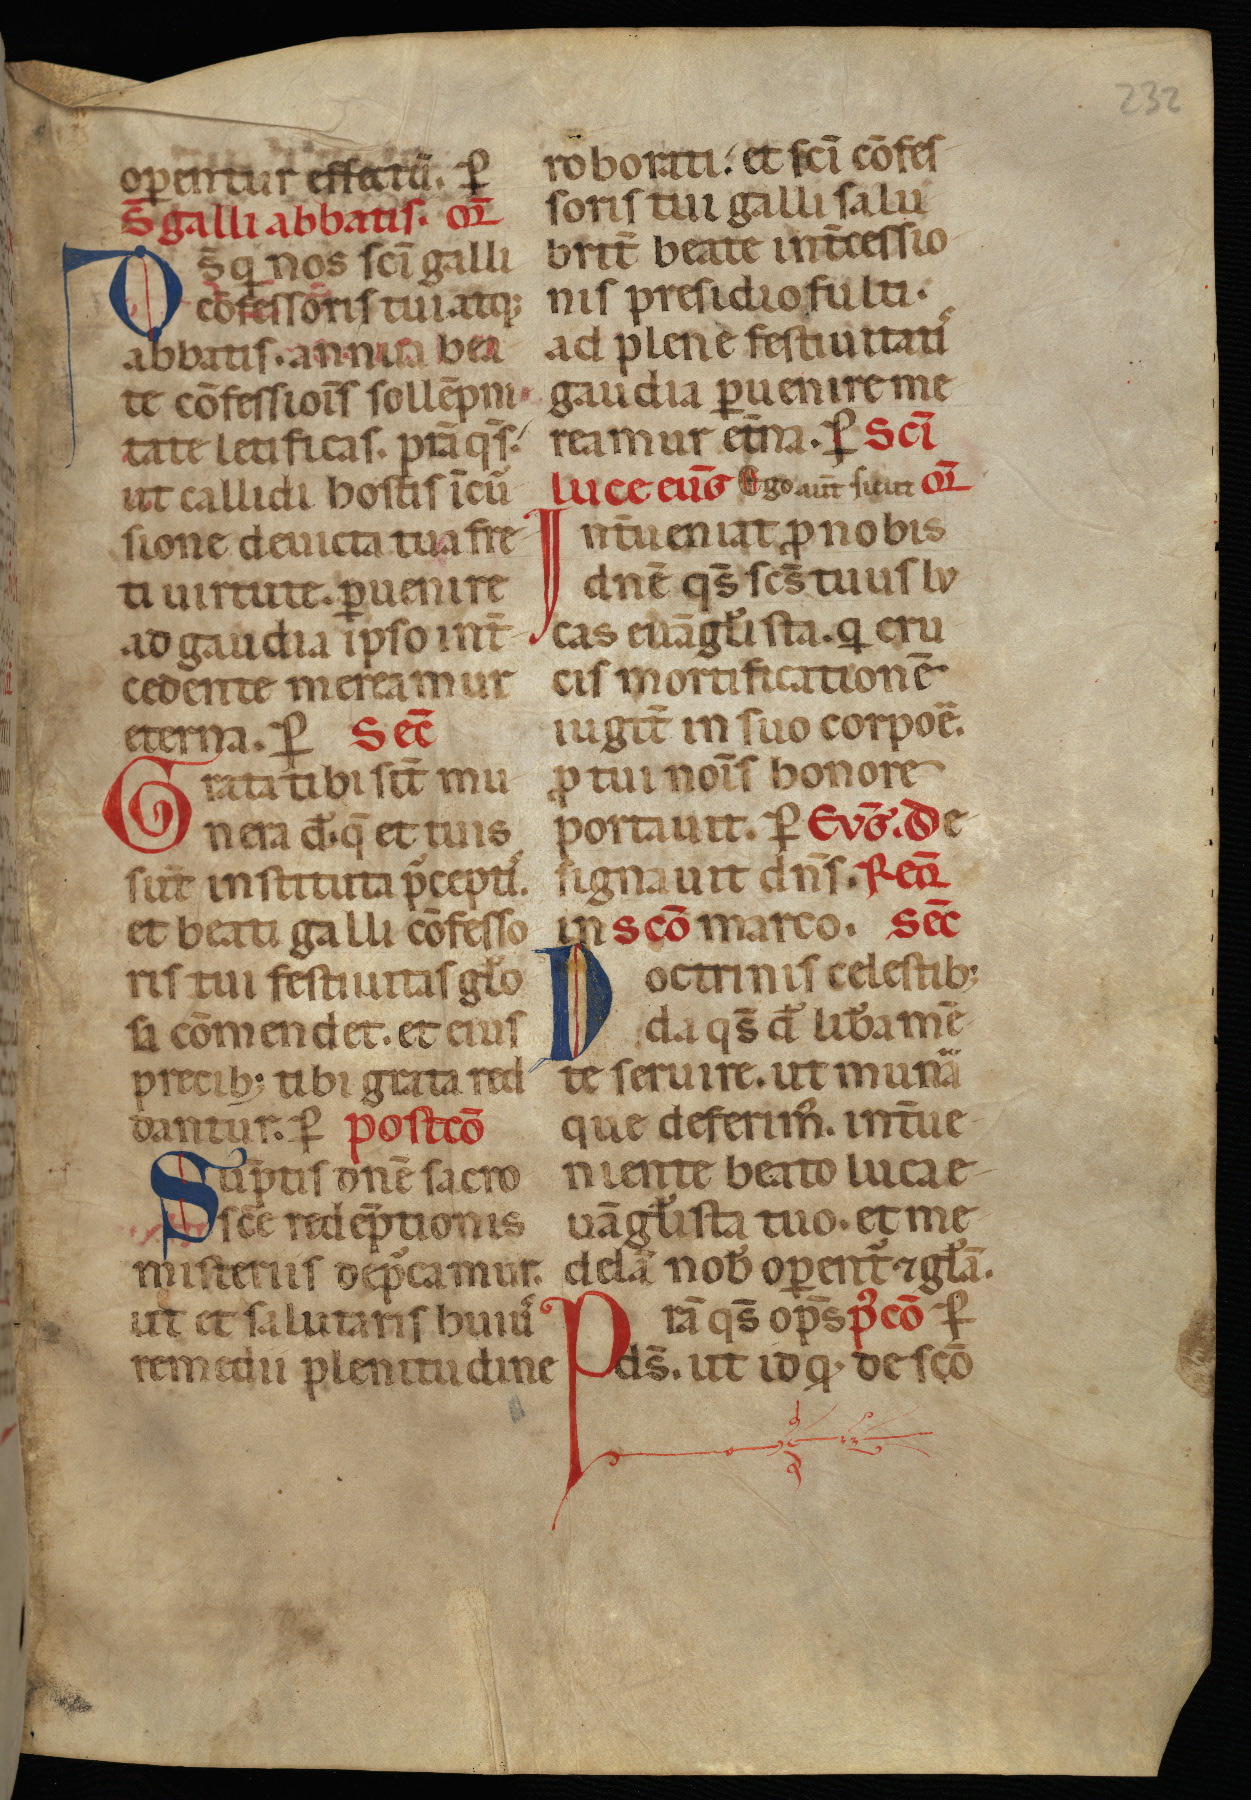 232
operentur effectū. ꝑ
S̄ galli abbatis. oꝝ̄
Ds̄ q̄ nos sc̄i galli
cōfessōris tui. atq;
abbatis. annua bea
te cōfessiōis sollēpni
tate letificas. prā qs̄.
ut callidi hostis īcur̄
sione deuicta tua fre
ti uirtute. ꝑuenire
ad gaudia ipso int̄
cedente mereamur
eterna. ꝑ Sec̄
Grata tibi sīt mu
nera d̄. q̄ et tuis
sūt instituta p̄cepti.
et beati galli cōfesso
ris tui festiuitas gl̄o
sa cōmendet. et eius
precib; tibi grata red
dantur. ꝑ postcō
Sūptis dn̄e sacro
sc̄e redēptionis
misteriis dep̄camur.
ut et salutaris huiuˢ
remedii plenitudine
roborati. et sc̄i cōfes
soris tui galli salu
brit̄ beate int̄cessio
nis presidio fulti.
ad plene festiuitatiˢ
gaudia ꝑuenire me
reamur et̄na. ꝑ Sc̄i
luce euḡ Ego aut̄ sicut oꝝ̄
Int̄ueniat ꝓ nobis
dn̄e qs̄ sc̄s tuus lu
cas euāgl̄ista. q̄ cru
cis mortificationē
iugit̄ in suo corpoē.
ꝓ tui nōis honore
portauit. ꝑ Euḡ. De
signauit dn̄s. Reꝗ̄
in scō marco. Sec̄
Doctrinis celestib;
da qs̄ d̄ lib̄a mē
te seruire. ut munā
que deferimꝰ. int̄ue
niente beato luca e
uāgl̄ista tuo. et me
delā nob̄ operent̄ ⁊ gl̄ā.
Prā qs̄ op̄s p̄cō ꝑ
ds̄. ut id q; de scō